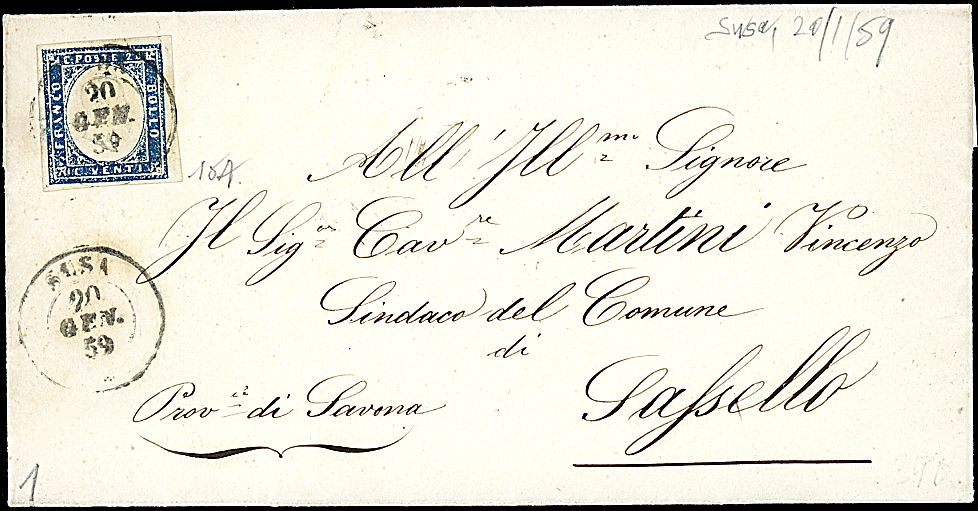 Susa, 20/1/59
C. POSTE 20
FRANCO
BOLLO
C. VENTI
20
GEN.
59
15A.
All' Ill.mo Signore
Il Sig.or Cav.re Martini Vincenzo
Sindaco del Comune
di
Sassello
Prov.a di Savona
SUSA
20
GEN.
59
1